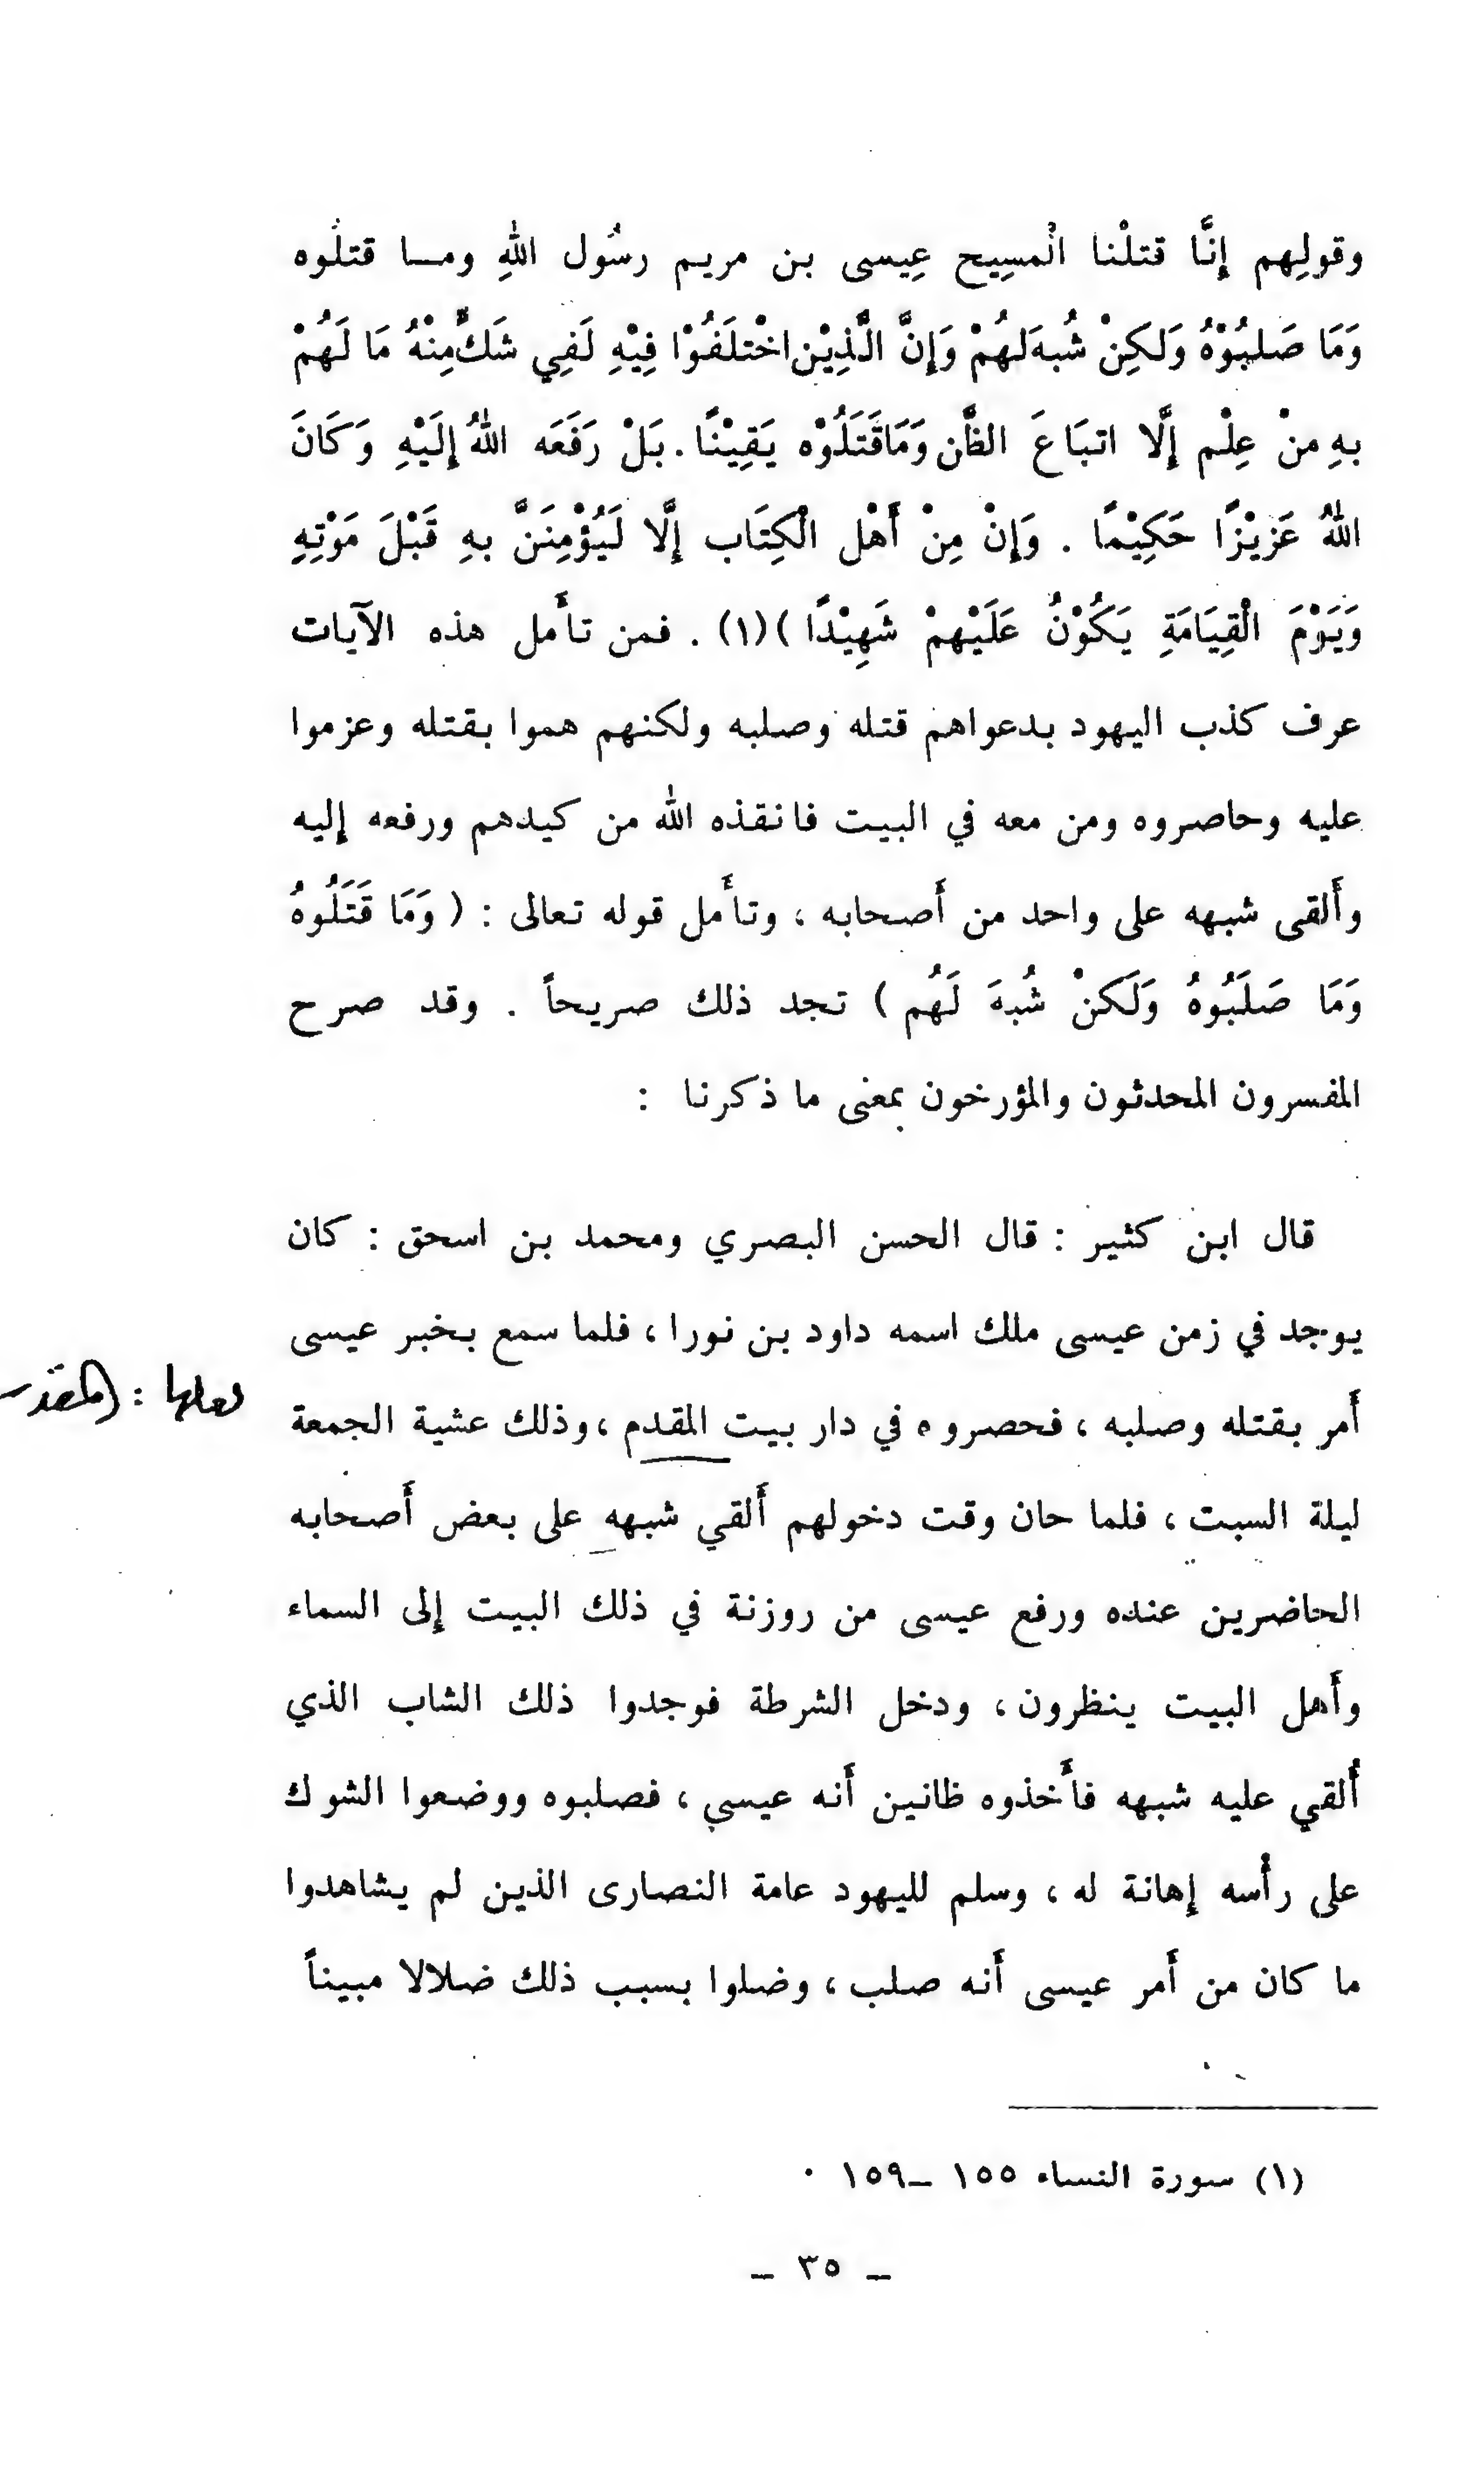 وقولِهم إنَّا قتلْنا الْمسِيح عِيسى بن مريم رسُول اللهِ ومـا قتلُوه
وَمَا صَلبُوْهُ وَلكِنْ شُبهَ لهُمْ وَإنَّ الَّذِيْن اخْتلَفُوْا فِيْهِ لَفِي شَكٍّ مِنْهُ مَا لَهُمْ
بهِ منْ عِلْم إلَّا اتبَاعَ الظَّن وَمَا قَتَلُوْه يَقِيْنًا . بَلْ رَفَعَه اللهُ إلَيْهِ وَكَانَ
اللهُ عَزيْزًا حَكِيْمًا . وَإنْ مِنْ أَهْل الْكِتَاب إلَّا لَيُؤْمِنَنَّ بهِ قَبْلَ مَوْتِهِ
وَيَوْمَ الْقِيَامَةِ يَكُوْنُ عَلَيْهمْ شَهِيْدًا )(١) . فمن تأَمل هذه الآيات
عرف كذب اليهود بدعواهم قتله وصلبه ولكنهم هموا بقتله وعزموا
عليه وحاصروه ومن معه في البيت فانقذه الله من كيدهم ورفعه إليه
وأَلقى شبهه على واحد من أَصحابه ، وتأَمل قوله تعالى : ( وَمَا قَتَلُوهُ
وَمَا صَلَبُوهُ وَلَكنْ شُبهَ لَهُم ) تجد ذلك صريحاً . وقد صرح
المفسرون المحدثون والمؤرخون بمعنى ما ذكرنا :
قال ابن كثير : قال الحسن البصري ومحمد بن اسحق : كان
يوجد في زمن عيسى ملك اسمه داود بن نورا ، فلما سمع بخبر عيسى
أَمر بقتله وصلبه ، فحصروه في دار بيت المقدم ، وذلك عشية الجمعة
لعلها :
ليلة السبت ، فلما حان وقت دخولهم أَلقي شبهه على بعض أَصحابه
الحاضرين عنده ورفع عيسى من روزنة في ذلك البيت إلى السماء
وأَهل البيت ينظرون ، ودخل الشرطة فوجدوا ذلك الشاب الذي
أُلقي عليه شبهه فأَخذوه ظانين أَنه عيسى ، فصلبوه ووضعوا الشوك
على رأْسه إهانة له ، وسلم لليهود عامة النصارى الذين لم يشاهدوا
ما كان من أَمر عيسى أَنه صلب ، وضلوا بسبب ذلك ضلالا مبيناً
(١) سورة النساء ١٥٥ -١٥٩ .
- ٣٥ -